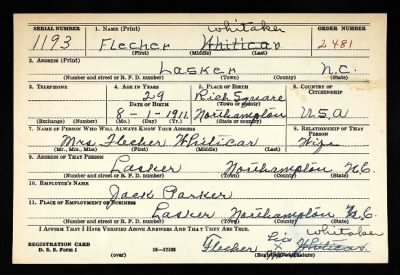 SERIAL NUMBER 1. NAME (Print) whitaker ORDER NUMBER
1193 Flecher Whiticar 2481
(First) (Middle) (Last)
2. ADDRESS (Print)
Lasker N.C.
(Number and street or R. F. D. number) (Town) (County) (State)
3. TELEPHONE 4. AGE IN YEARS 5. PLACE OF BIRTH 6. COUNTRY OF CITIZENSHIP
29 Rich Square
DATE OF BIRTH (Town or county)
8-11-1911. Northampton U.S.A
(Exchange) (Number) (Mo.) (Day) (Yr.) (State or country)
7. NAME OF PERSON WHO WILL ALWAYS KNOW YOUR ADDRESS 8. RELATIONSHIP OF THAT PERSON
Mrs. Flecher Whiticar Wife
(Mr., Mrs., Miss) (First) (Middle) (Last)
9. ADDRESS OF THAT PERSON
Lasker Northampton N.C.
(Number and street or R. F. D. number) (Town) (County) (State)
10. EMPLOYER'S NAME
Jack Parker
11. PLACE OF EMPLOYMENT OR BUSINESS
Lasker Northampton N.C.
(Number and street or R. F. D. number) (Town) (County) (State)
I AFFIRM THAT I HAVE VERIFIED ABOVE ANSWERS AND THAT THEY ARE TRUE.
whitaker
REGISTRATION CARD Flecher his Whiticar
D. S. S. Form 1 16-17105